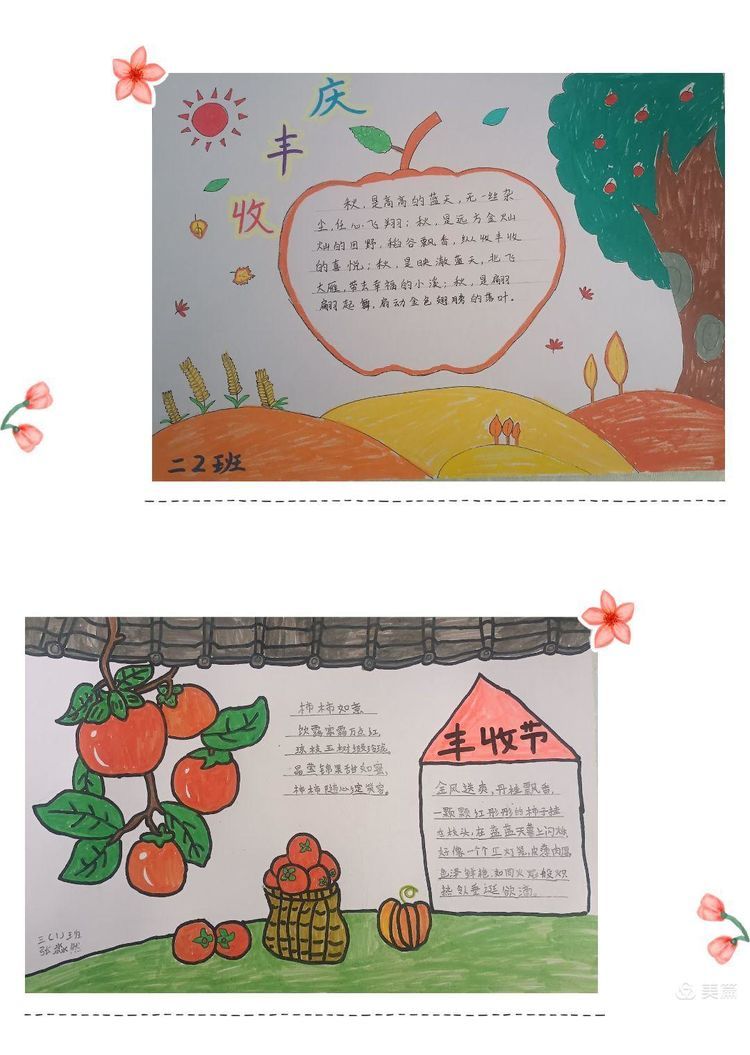 庆
丰
收
秋，是高高的蓝天，无一丝杂
尘，任心飞翔；秋，是远方金灿
灿的田野，稻谷飘香，纵收丰收
的喜悦；秋，是映澈蓝天，北飞
大雁，带去幸福的小溪；秋，是翩
翩起舞，扇动金色翅膀的落叶。
二2班
柿柿如意
饮露蜜霜万点红，
琼枝玉树缀玲珑，
品莹锦果甜如蜜，
柿柿随心绽笑容。
丰收节
金风送爽，丹桂飘香，
一颗颗红彤彤的柿子挂
在枝头，在蓝蓝天幕上闪烁
好像一个个红灯笼，皮薄肉厚
色泽鲜艳，如同火焰般炽
热令垂涎欲滴。
三(1)班
张
美篇